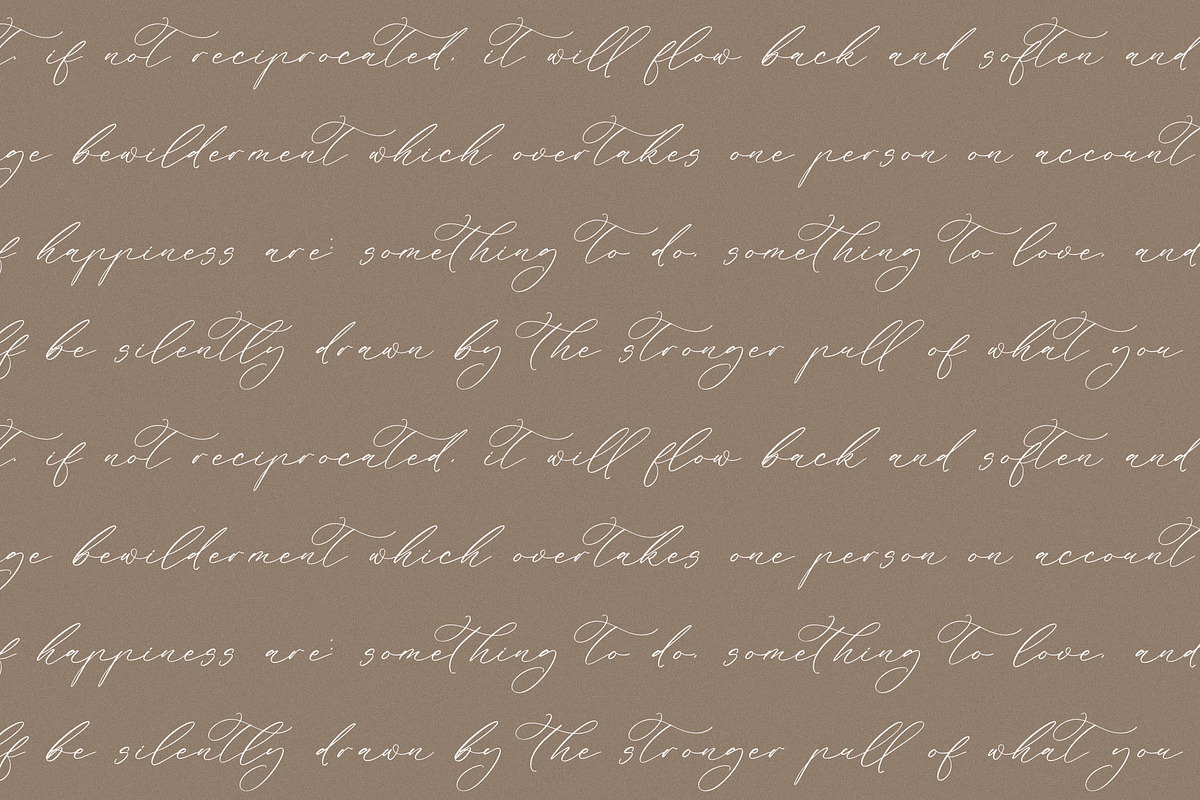 t, if not reciprocated, it will flow back and soften and
ge bewilderment which overtakes one person on account
f happiness are: something to do, something to love, and
lf be silently drawn by the stronger pull of what you
t, if not reciprocated, it will flow back and soften and
ge bewilderment which overtakes one person on account
f happiness are: something to do, something to love, and
lf be silently drawn by the stronger pull of what you